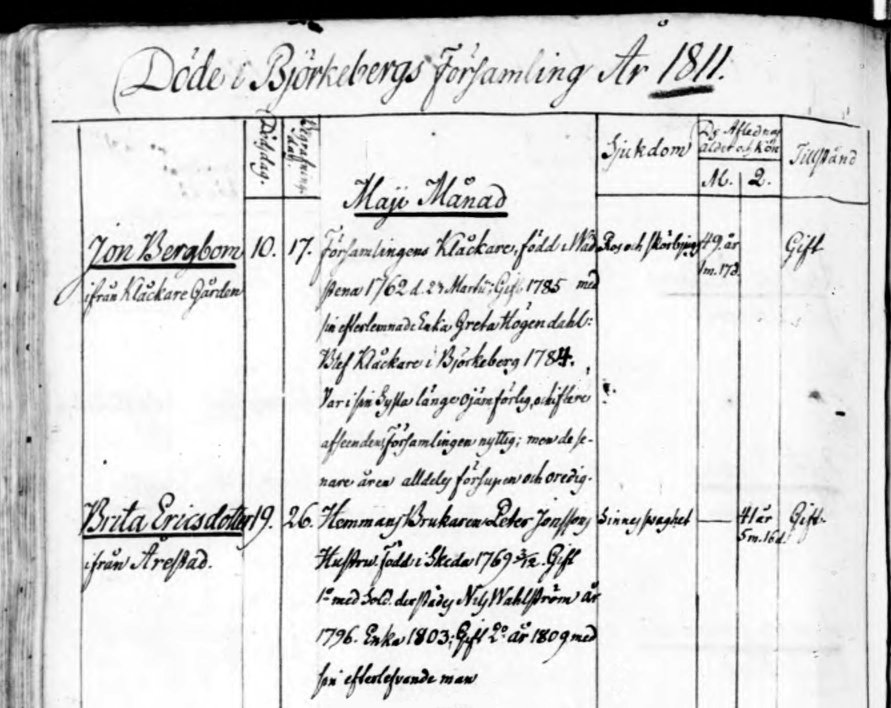 Döde i Björkebergs Församling År 1811.
Dödsdag.
Begrafnings-
dag.
Sjukdom
De Aflednas
ålder och Kön
M. Q.
Tillstånd
Maji Månad
Jon Bergbom 10. 17. Församlingens Klåckare, född i Wad Ros och skörbjugg 49. år Gift
ifrån Klåckare Gården stena 1762 d. 24 Martii; Gift 1785 med 1m. 17d.
sin efterlemnade Enka Greta Högendahl:
Blef Klåckare i Björkeberg 1784.
Var i sin Syssla länge ojämförlig, och i flere
afseenden Församlingen nyttig; men de se-
nare åren alldeles försupen och oredig.
Brita Ericsdotter 19. 26. Hemmans Brukaren Peter Jonssons Sinnessvaghet — 41 år Gift.
ifrån Årestad. Hustru. Född i Skeda 1769 3/12. Gift 5m. 16d.
1º med Sold. derstädes Nils Wahlström år
1796. Enka 1803; Gift 2º år 1809 med
sin efterlefvande man